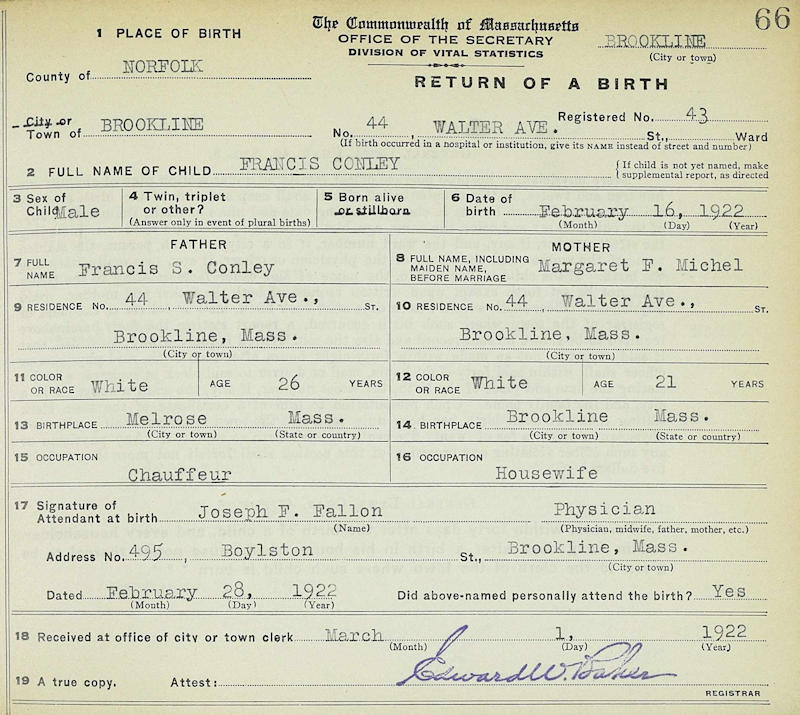 66
The Commonwealth of Massachusetts
OFFICE OF THE SECRETARY
DIVISION OF VITAL STATISTICS
BROOKLINE
(City or town)
RETURN OF A BIRTH
1 PLACE OF BIRTH
County of NORFOLK
City or
Town of BROOKLINE
No. 44, WALTER AVE. St., Ward
Registered No. 43
(If birth occurred in a hospital or institution, give its NAME instead of street and number)
2 FULL NAME OF CHILD FRANCIS CONLEY
{ If child is not yet named, make
supplemental report, as directed
3 Sex of
Child Male
4 Twin, triplet
or other?
(Answer only in event of plural births)
5 Born alive
or stillborn
6 Date of
birth February 16, 1922
(Month) (Day) (Year)
FATHER
7 FULL
NAME Francis S. Conley
9 RESIDENCE No. 44, Walter Ave., ST.
Brookline, Mass.
(City or town)
11 COLOR
OR RACE White AGE 26 YEARS
13 BIRTHPLACE Melrose Mass.
(City or town) (State or country)
15 OCCUPATION
Chauffeur
MOTHER
8 FULL NAME, INCLUDING
MAIDEN NAME,
BEFORE MARRIAGE Margaret F. Michel
10 RESIDENCE No. 44, Walter Ave., ST.
Brookline, Mass.
(City or town)
12 COLOR
OR RACE White AGE 21 YEARS
14 BIRTHPLACE Brookline Mass.
(City or town) (State or country)
16 OCCUPATION
Housewife
17 Signature of
Attendant at birth Joseph F. Fallon Physician
(Name) (Physician, midwife, father, mother, etc.)
Address No. 495, Boylston St., Brookline, Mass.
(City or town)
Dated February 28, 1922 Did above-named personally attend the birth? Yes
(Month) (Day) (Year)
18 Received at office of city or town clerk March 1, 1922
(Month) (Day) (Year)
19 A true copy. Attest: Edward W. Baker
REGISTRAR